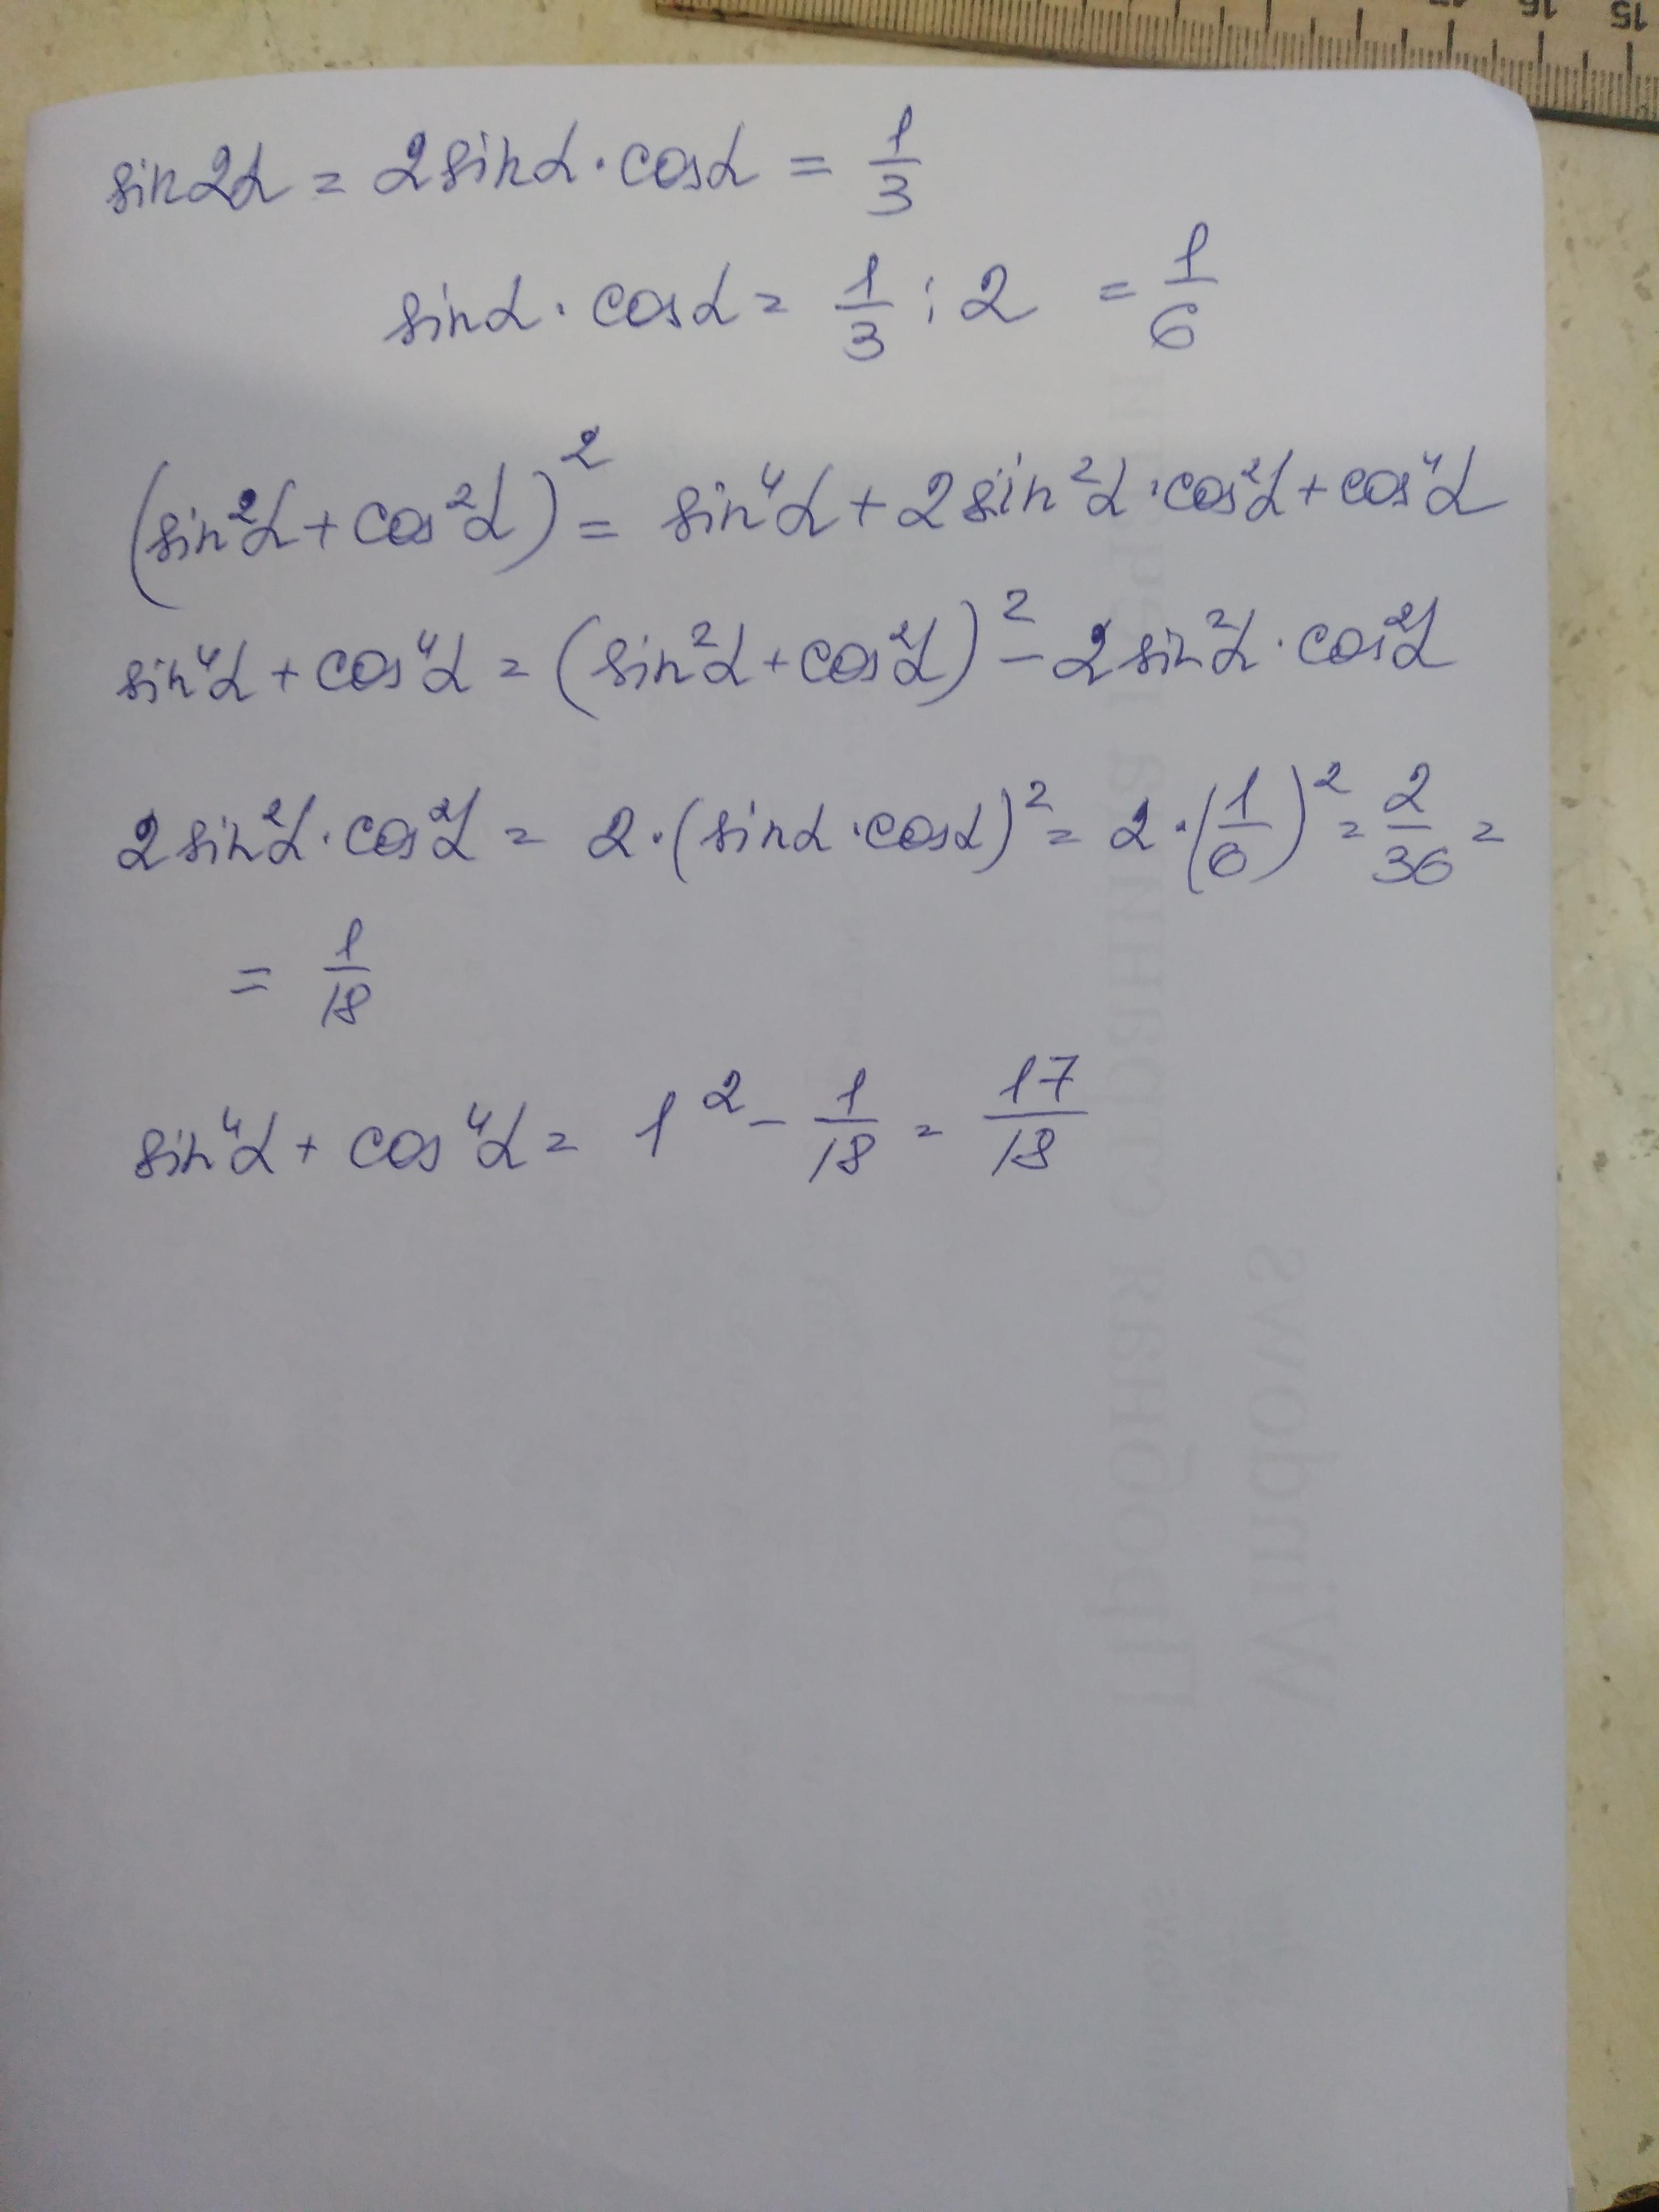 15 16 17
sin2α = 2sinα · cosα = 1/3
sinα · cosα = 1/3 : 2 = 1/6
(sin²α + cos²α)² = sin⁴α + 2sin²α · cos²α + cos⁴α
sin⁴α + cos⁴α = (sin²α + cos²α)² − 2sin²α · cos²α
2sin²α · cos²α = 2 · (sinα · cosα)² = 2 · (1/6)² = 2/36 =
= 1/18
sin⁴α + cos⁴α = 1² − 1/18 = 17/18
Пробная страница
Windows